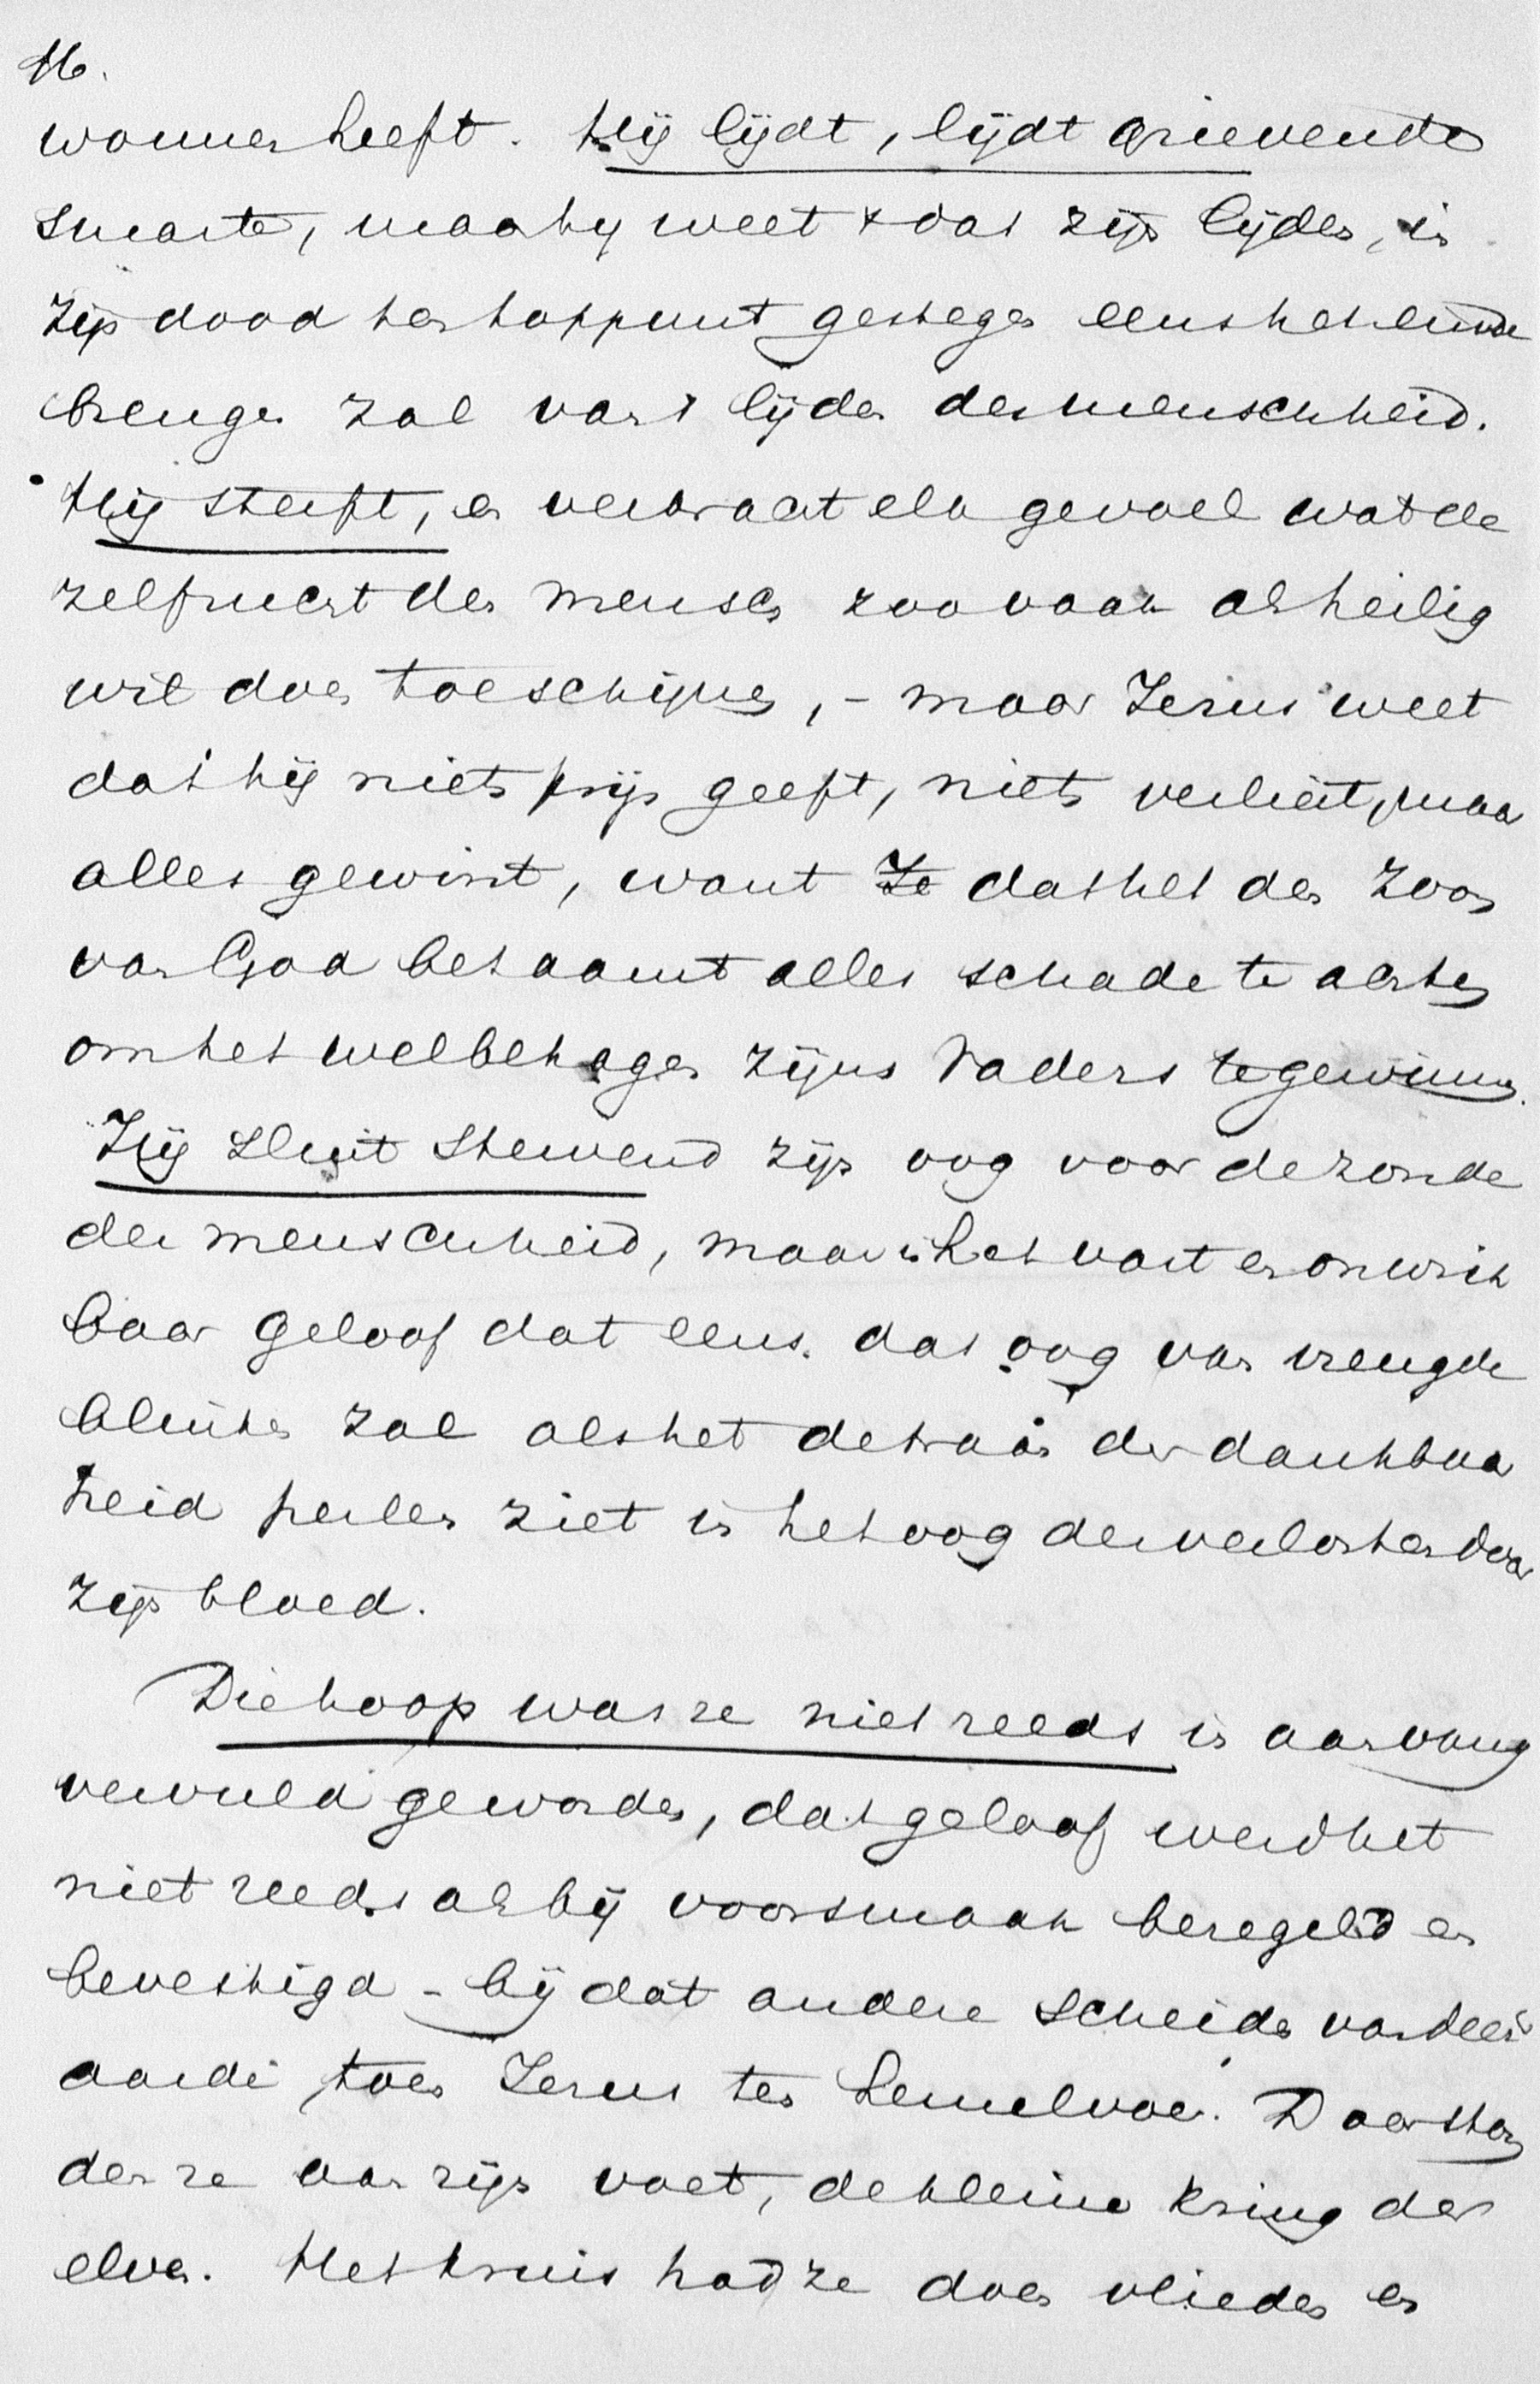 16.
wonnen heeft. Hij lijdt, lijdt grievende
smarte, maar hij weet dat zijn lijden, in
zijn dood ten toppunt gestegen eens het einde
brengen zal van 't lijden der menschheid.
Hij sterft, en verkracht elk gevoel wat de
zelfzucht des menschen zoo vaak als heilig
wil doen toeschijnen, - maar Jezus weet
dat hij niets prijs geeft, niets verliest, maar
alles gewint, want Je dat het den Zoon
van God betaamt alles schade te achten
om het welbehagen zijns Vaders te gewinnen.
Hij sluit stervend zijn oog voor de zonde
der menschheid, maar in het vast en onwrik
baar geloof dat eens dat oog van vreugde
blinken zal als het de traan der dankbaar
heid perlen ziet in het oog der verlosten door
zijn bloed.
Die hoop was ze niet reeds in aanvang
vervuld geworden, dat geloof werd het
niet reeds als bij voorsmaak bezegeld en
bevestigd - bij dat andere scheiden van deez'
aarde toen Jezus ten hemel voer. Daar ston
den ze aan zijn voet, de kleine kring der
elven. Het kruis had ze doen vlieden en